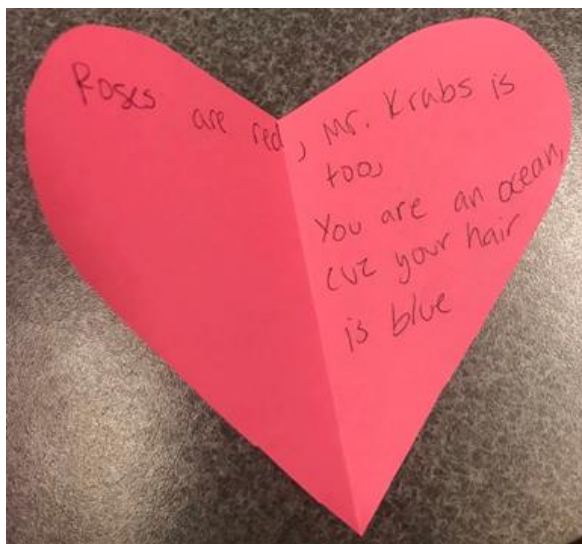 Roses are red, Mr. Krabs is
too,
You are an ocean,
cuz your hair
is blue